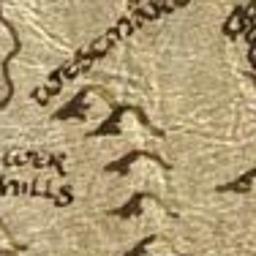 WESTMAR
WER
hILLS